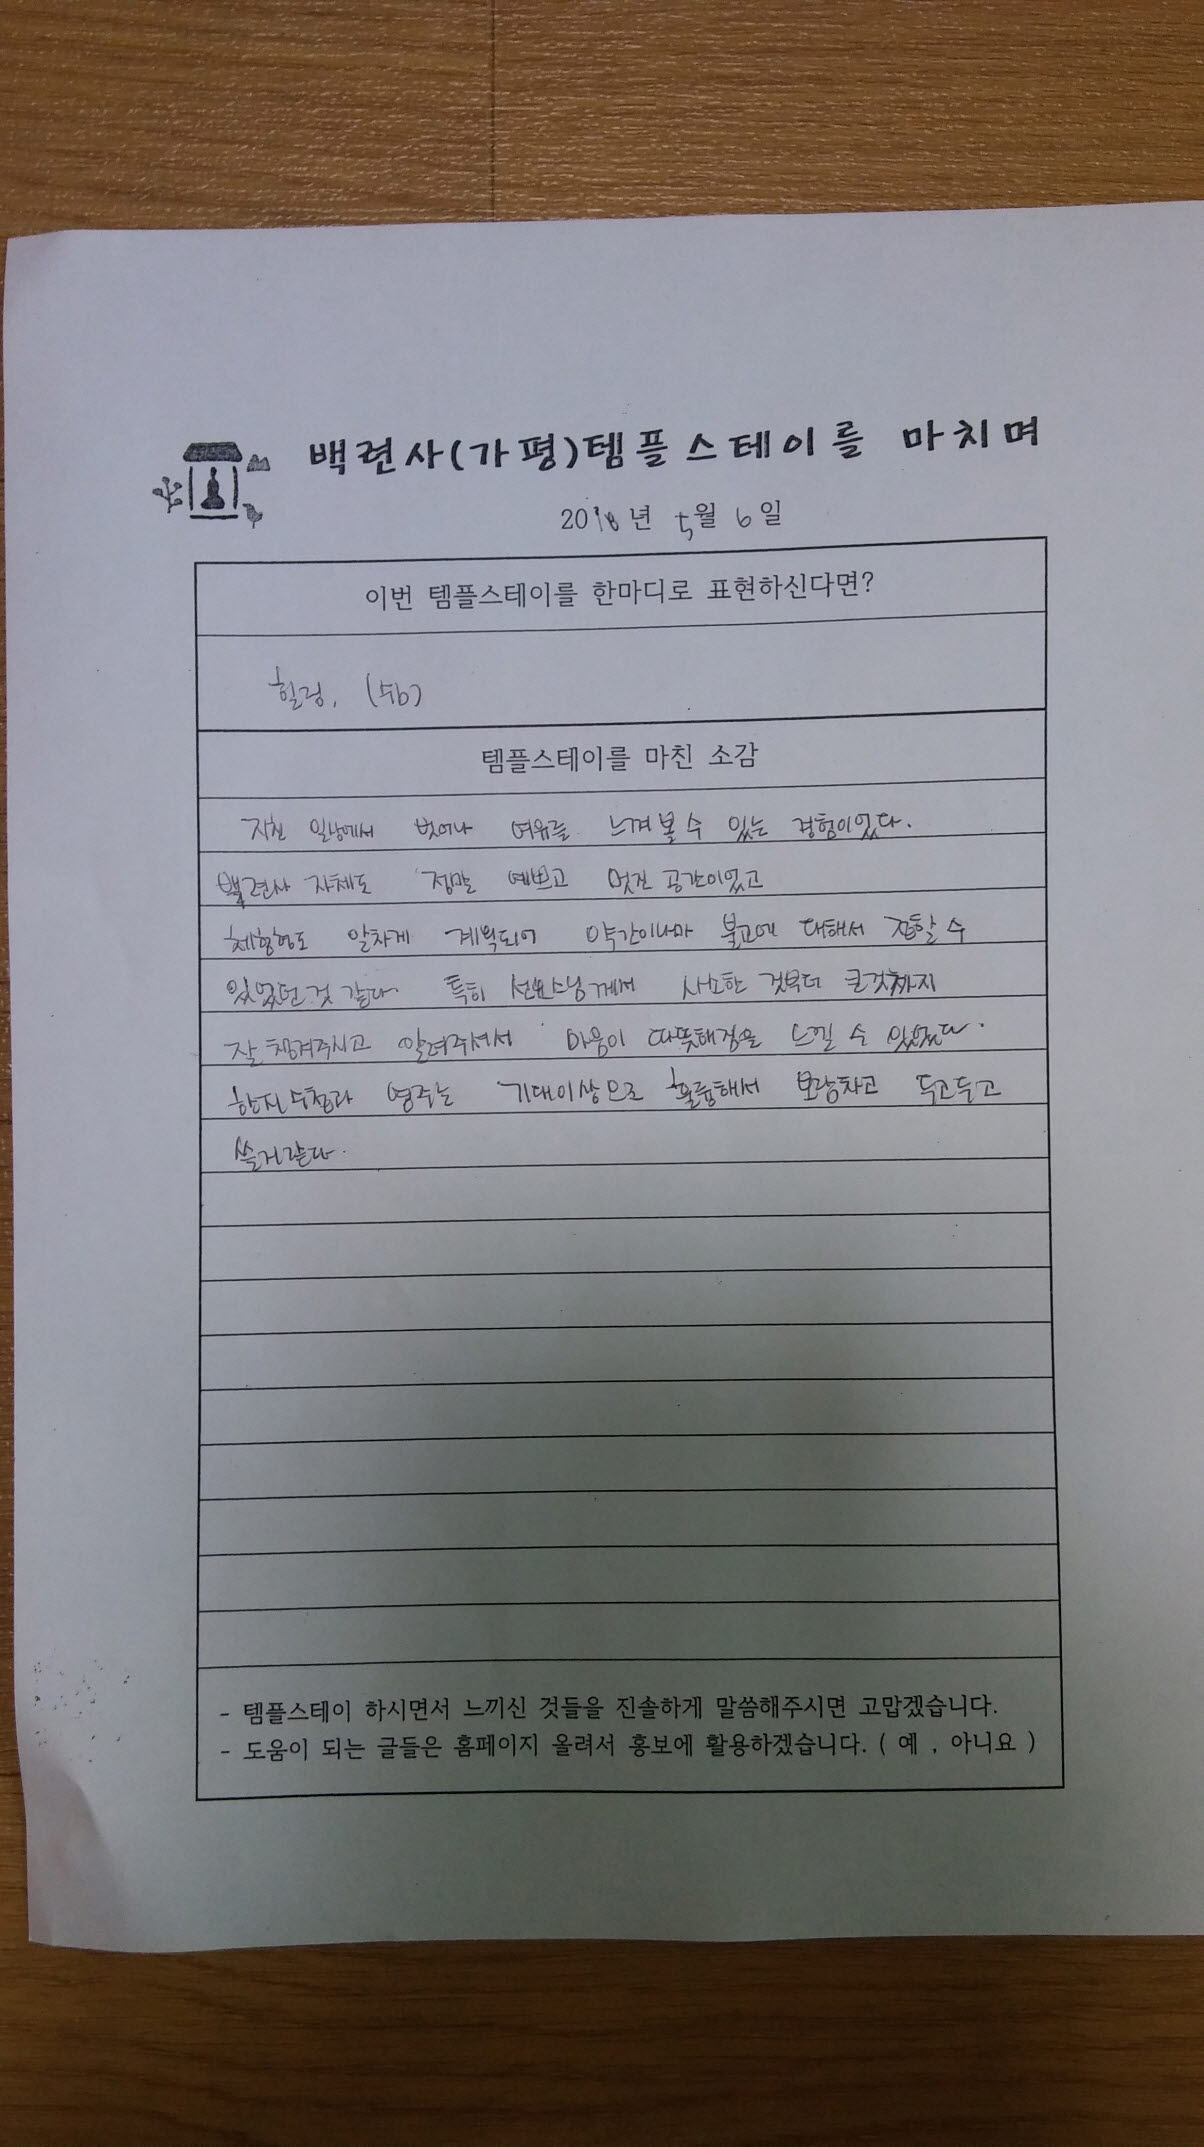 백련사(가평)템플스테이를 마치며
2018년 5월 6일
이번 템플스테이를 한마디로 표현하신다면?
힐링. (쉼)
템플스테이를 마친 소감
지친 일상에서 벗어나 여유를 느껴볼 수 있는 경험이었다.
백련사 자체도 정말 예쁘고 멋진 공간이었고
체험형도 알차게 계획되어 약간이나마 불교에 대해서 접할 수
있었던 것 같다. 특히 선묘스님께서 사소한 것부터 큰것까지
잘 챙겨주시고 알려주셔서 마음이 따뜻해짐을 느낄 수 있었다.
한지수첩과 염주는 기대이상으로 훌륭해서 보람차고 두고두고
쓸거같다.
- 템플스테이 하시면서 느끼신 것들을 진솔하게 말씀해주시면 고맙겠습니다.
- 도움이 되는 글들은 홈페이지 올려서 홍보에 활용하겠습니다. ( 예 , 아니요 )